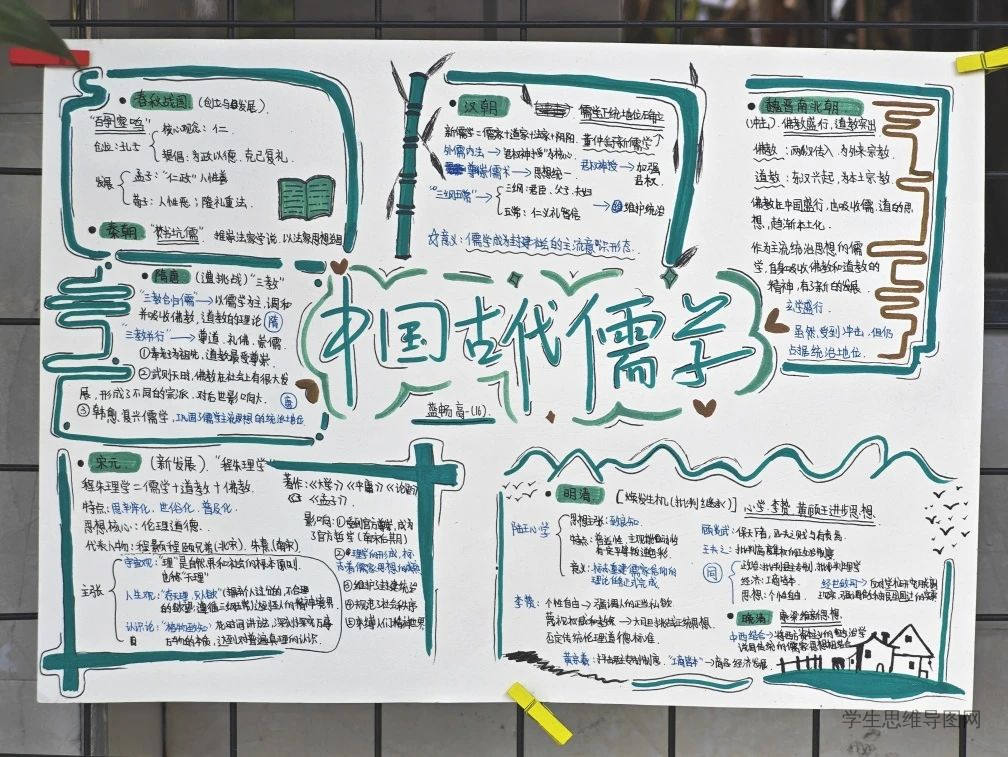 春秋战国 (创立与发展).
"百家争鸣"
创立:孔子
核心观念:仁.
提倡:为政以德,克己复礼.
发展
孟子:"仁政"人性善
荀子:人性恶;隆礼重法.
秦朝 "焚书坑儒". 推崇法家学说,以法家思想治国
汉朝 儒学正统地位确立
新儒学=儒家+道家+法家+阴阳. 董仲舒新儒学
外儒内法→君权神授为核心. 君权神授→加强君权.
尊崇儒术→思想统一.
"三纲五常"→
三纲:君臣、父子、夫妇
五常:仁义礼智信
→维护统治
意义:儒学成为封建社会的主流意识形态.
魏晋南北朝
(冲击).佛教盛行,道教突出
佛教:两汉传入,为外来宗教.
道教:东汉兴起,为本土宗教.
佛教在中国盛行,也吸收儒、道的思
想,趋渐本土化.
作为主流统治思想的儒
学,自身吸收佛教和道教的
精神,有新的发展.
玄学盛行.
虽然,受到冲击,但仍
占据统治地位.
隋唐 (遭挑战)"三教"
"三教合归儒"→以儒学为主,调和
并吸收佛教,道教的理论 隋
"三教并行"→尊道、礼佛、崇儒.
①奉老子为祖先,道教最受尊崇.
②武则天时,佛教在社会上有很大发
展,形成了不同的宗派.对后世影响大.
③韩愈,复兴儒学,巩固了儒学主流思想的统治地位
唐
中国古代儒学
蓝畅 高一(16).
宋元. (新发展)."程朱理学"
程朱理学=儒学+道教+佛教.
特点:思辨化、世俗化、普及化.
思想核心:伦理道德.
代表人物:程颢和程颐兄弟(北宋)、朱熹(南宋)
主张
宇宙观:"理"是自然界和社会的根本原则.
也称"天理"
人生观:"存天理,灭人欲"
认识论:"格物致知"
万物的本质,达到对普遍真理的认识.
著作:《大学》《中庸》《论语》
《孟子》
影响:①受到官方尊崇,成为
官方哲学(南宋后期)
②理学的形成,标
志着儒家思想的成熟
③维护封建统治
④规范了社会秩序
明清. [焕发生机(批判主继承)]
心学、李贽、黄顾王进步思想.
陆王心学
思想主张:致良知
意义:
李贽:个性自由→强调人的正当私欲
否定传统伦理道德标准.
黄宗羲:抨击君主专制制度、"工商皆本"→商品经济发展.
顾炎武:保天下者,匹夫之贱与有责焉
王夫之:
同
政治:批判君主专制、批判理学
经济:工商皆本. 经世致用→
思想:个性自由.
晚清 康梁维新思想.
中西结合→
学生思维导图网